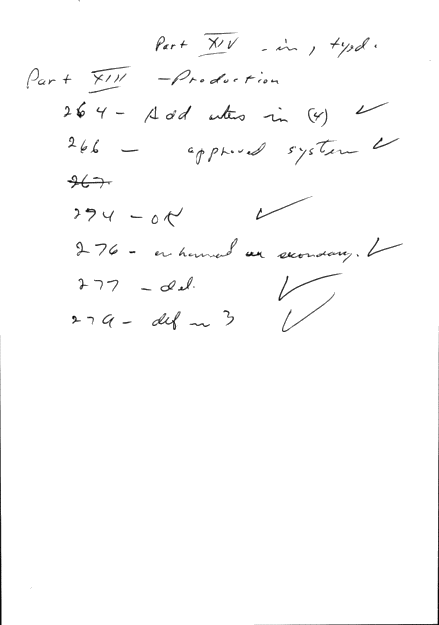 Part XIV - in, typd.
Part XIII - Production
264 - Add in (4) ✓
266 - approved system ✓
267.
274 - OK ✓
276 - enhanced or secondary. ✓
277 - del. ✓
279 - def 3 ✓